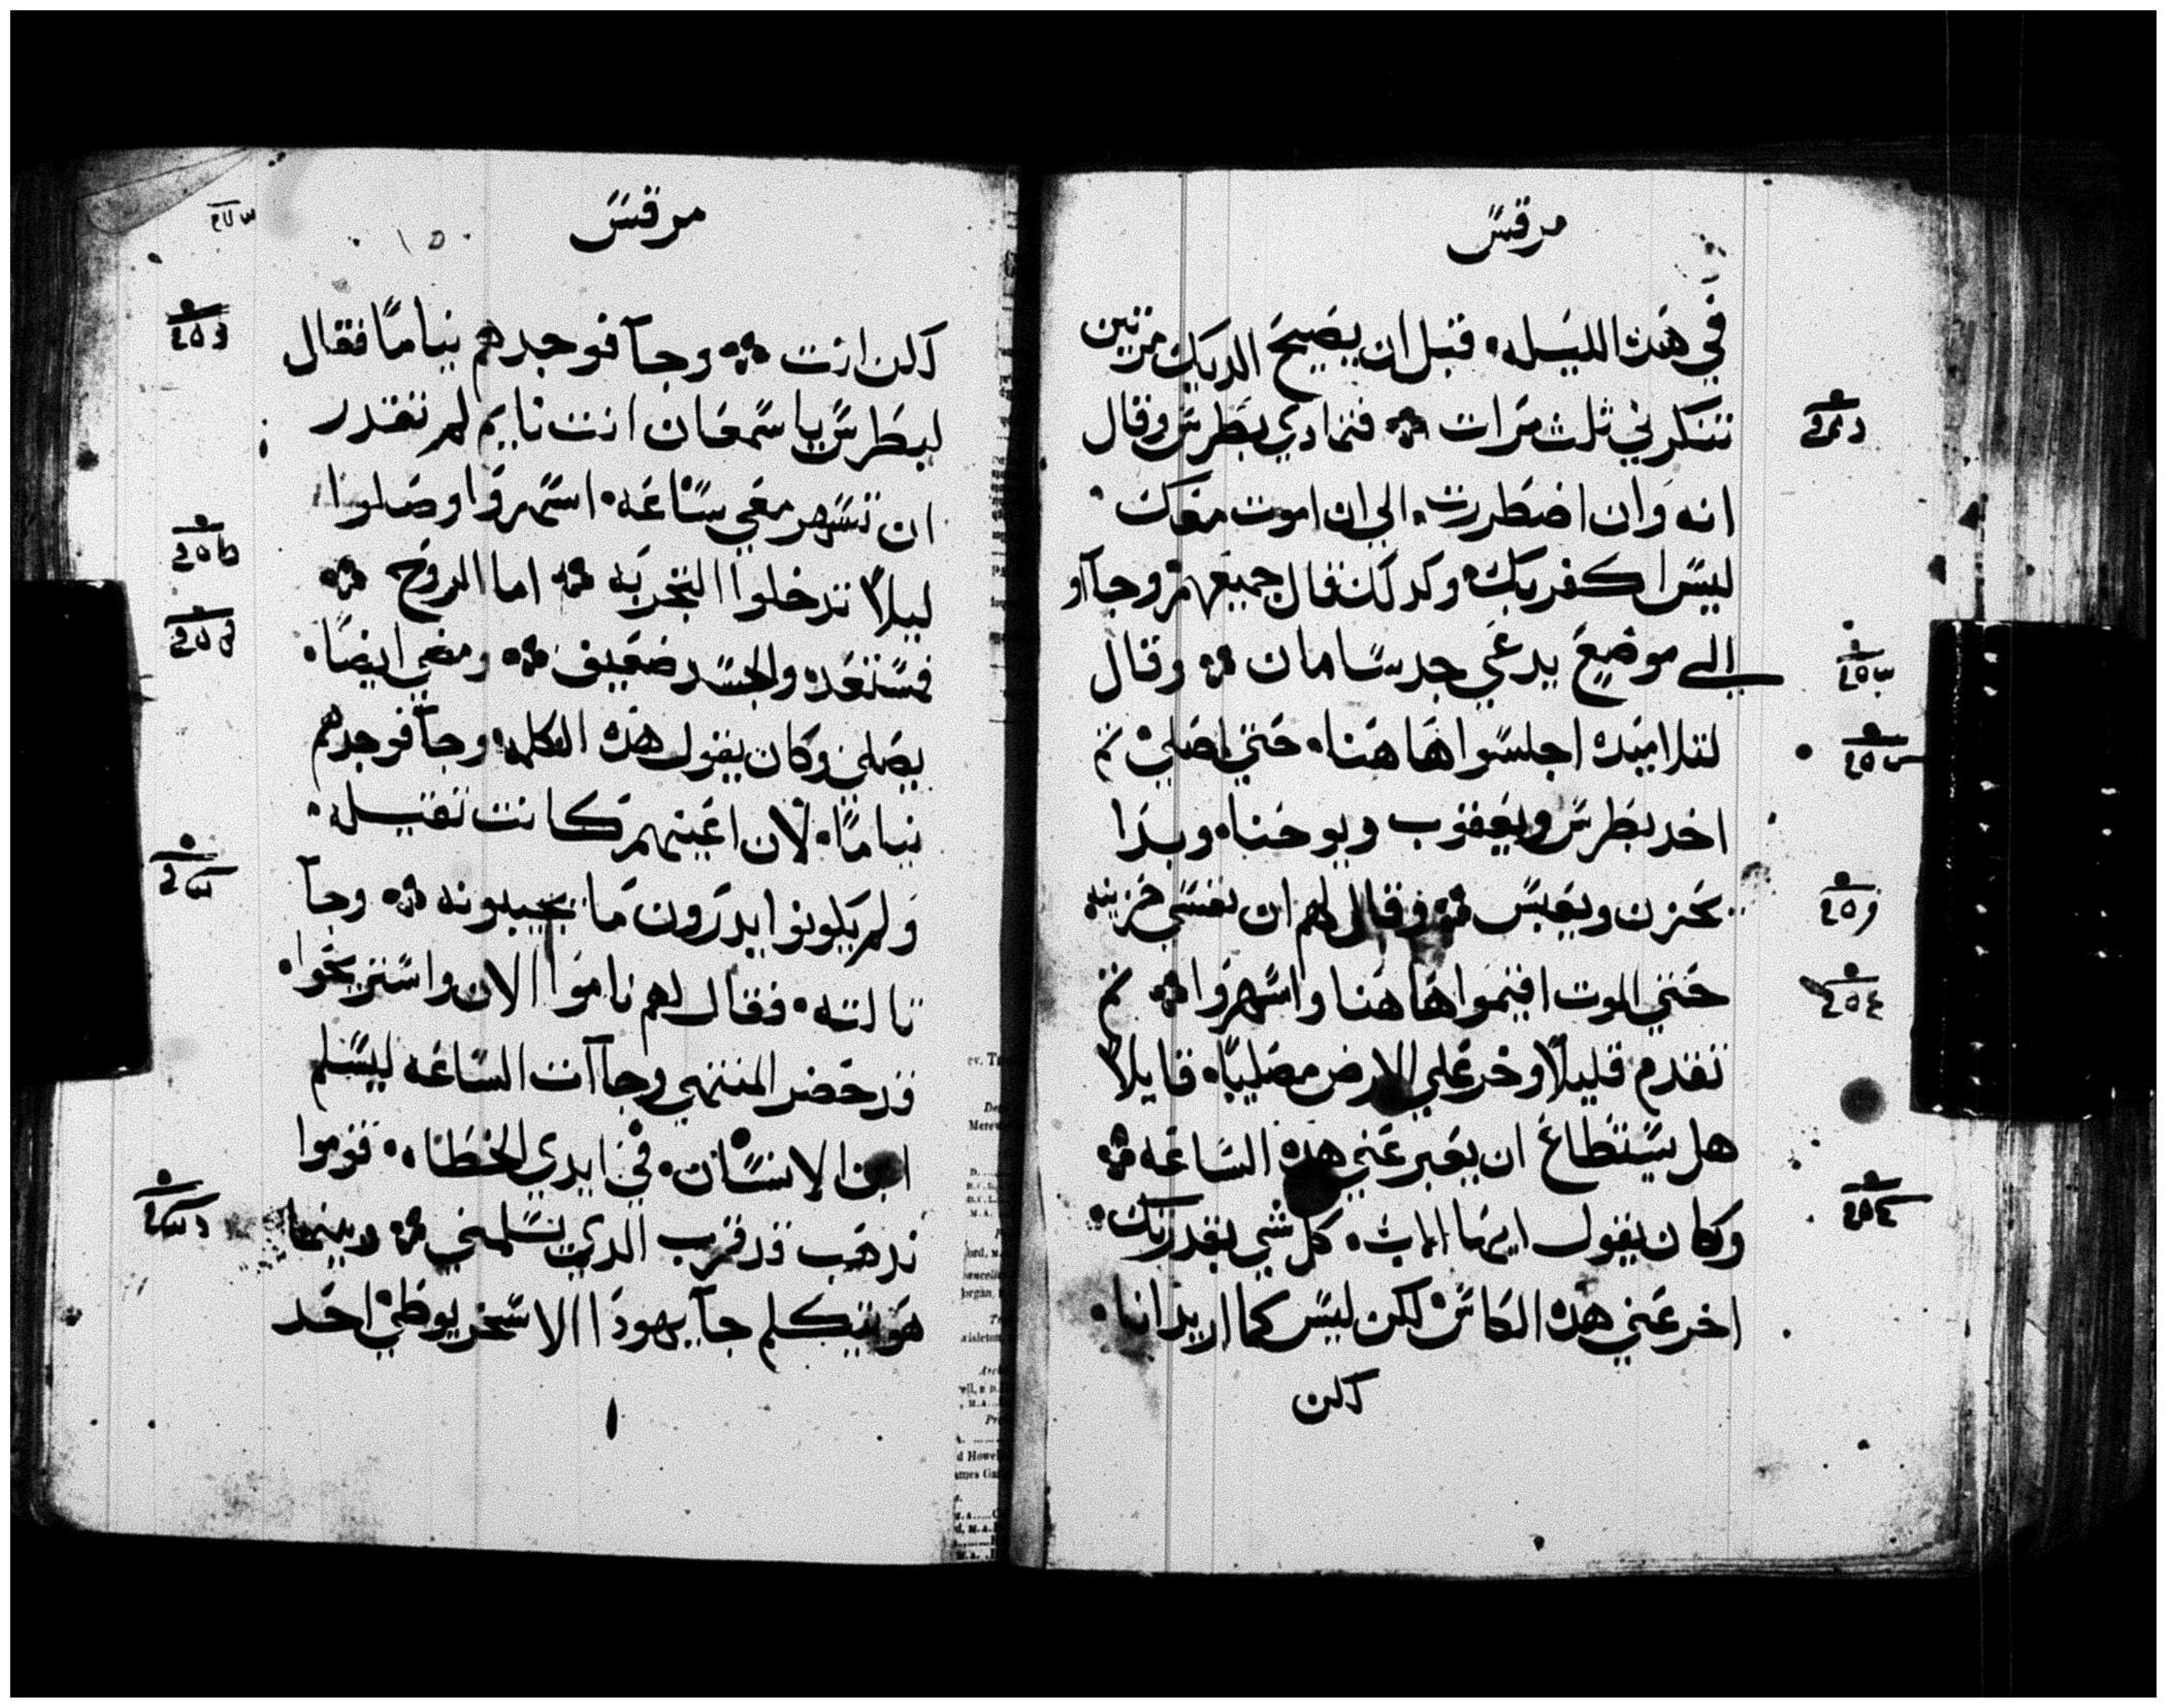 مرقس
في هذه الليله، قبل ان يصيح الديك مرتين
تنكرني ثلث مرات ܀ فتمادي بطرس وقال
انه وان اضطررت، الي ان اموت معك
ليس اكفر بك، وكدلك قال جميعهم ܀ وجآاو
الي موضع يدعي جدسامان ܀ وقال
لتلاميده اجلسوا هاهنا، حتي اصلي، تم
اخد بطرس ويعقوب ويوحنا، وبدا
يحزن ويعبس ܀ وقال لهم ان نفسي حزينه
حتي الموت اقيموا هاهنا واسهروا ܀ تم
تقدم قليلاً وخر علي الارض مصلياً، قايلاً
هل يستطاع ان يعبر عني هذه الساعه ܀
وكان يقول ايها الاب، كل شي بقدرتك،
اخر عني هذه الكاس، لكن ليس كما اريد انا،
لكن
مرقس
لكن انت ܀ وجآ فوجدهم نياماً فقال
لبطرس يا سمعان انت نايم لم تقدر
ان تسهر معي ساعه، اسهروا وصلوا
ليلاً تدخلوا التجربه ܀ اما الروح ܀
فمستعده والجسد ضعيف ܀ ومضي ايضاً،
يصلي، وكان يقول هذه الكلمه، وجآ فوجدهم
نياماً، لان اعينهم كانت تقيله،
ولم يكونوا يدرون ما يجيبونه ܀ وجآ
تالته، فقال لهم ناموا الان واستريحوا،
قد حضر المنتهي وجآات الساعه ليسلم
ابن الانسان، في ايدي الخطاه، قوموا
ندهب قد قرب الدي يسلمني ܀ وبينما
هو يتكلم جآ يهودا الاسخريوطي، احد